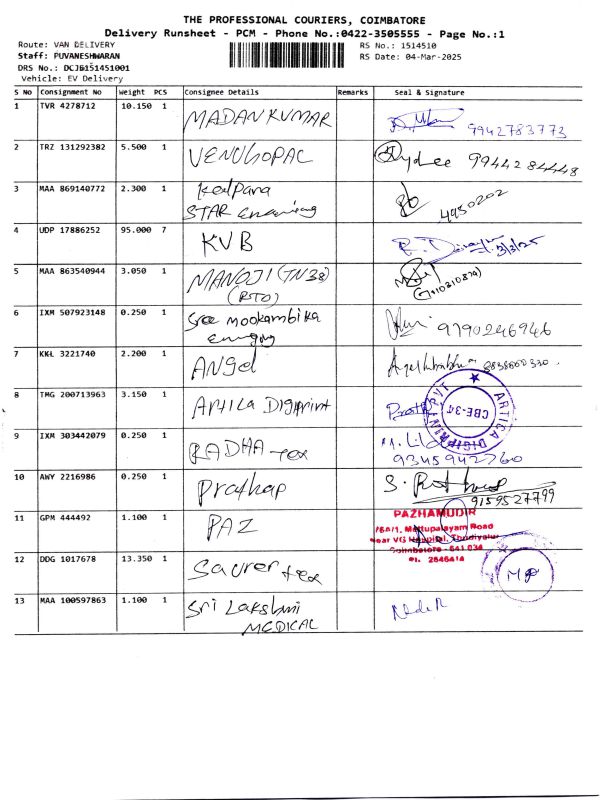 THE PROFESSIONAL COURIERS, COIMBATORE
Delivery Runsheet - PCM - Phone No.:0422-3505555 - Page No.:1
Route: VAN DELIVERY
RS No.: 1514510
Staff: PUVANESHWARAN
RS Date: 04-Mar-2025
DRS No.: DCJB151451001
Vehicle: EV Delivery
S No Consignment No Weight PCS Consignee Details Remarks Seal & Signature
1 TVR 4278712 10.150 1 MADAN KUMAR 9942783773
2 TRZ 131292382 5.500 1 VENUGOPAL 9944284448
3 MAA 869140772 2.300 1 Kalpana
STAR 4950202
4 UDP 17886252 95.000 7 KVB 3/3/25
5 MAA 863540944 3.050 1 MANOJI (TN38)
(RTO)
6 IXM 507923148 0.250 1 Sree mookambika
9790246946
7 KKL 3221740 2.200 1 ANGel
8 TMG 200713963 3.150 1 Artica Digiprint
ARTICA DIGIPRINT PVT
CBE-34
9 IXM 303442079 0.250 1 RADHA tex
9345942760
10 AWY 2216986 0.250 1 Prathap
9159527799
11 GPM 444492 1.100 1 PAZ
PAZHAMUDIR
Mettupalayam Road
Near VG Hospital, Thudiyalur
Coimbatore - 641 034
2646414
12 DDG 1017678 13.350 1 Saurer tex
13 MAA 100597863 1.100 1 Sri Lakshmi
MEDICAL